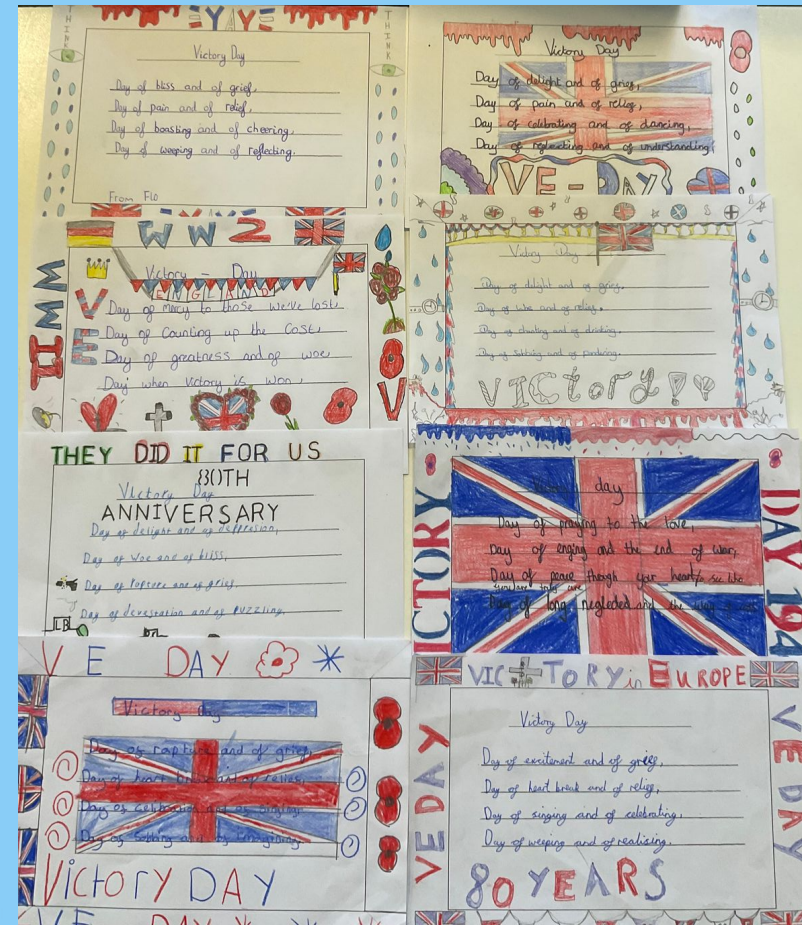 YAY
THINK
THINK
Victory Day
Day of bliss and of grief,
Day of pain and of relief,
Day of boasting and of cheering,
Day of weeping and of reflecting.
From Flo
Victory Day
Day of delight and of grief,
Day of pain and of relief,
Day of celebrating and of dancing,
Day of neglecting and of understanding!
VE-DAY
WW2
WWII
VE
V
Victory - Day
ENGLAND
Day of mercy to those we've lost
Day of Counting up the Cost,
Day of greatness and of woe
Day when victory is won
Victory Day
Day of delight and of grief,
Day of woe and of relief,
Day of chanting and of drinking,
Day of sobbing and of pondering.
VICtory!
THEY DID IT FOR US
80TH
Victory Day
ANNIVERSARY
Day of delight and of depression,
Day of woe and of bliss,
Day of rapture and of grief,
Day of devastation and of puzzling,
VICTORY
DAY 194
day
Day of praying to the love,
Day of enging and the end of war,
Day of peace though your hearts,
Day of long neglected and the
VE DAY
Victory Day
Day of rapture and of grief,
Day of heart break and of relief,
Day of celebration and of singing
Day of sobbing and of
Victory DAY
VE DAY
VICTORY in EUROPE
VE DAY
VE DAY
Victory Day
Day of excitement and of grief,
Day of heart break and of relief,
Day of singing and of celebrating,
Day of weeping and of realising.
80 YEARS